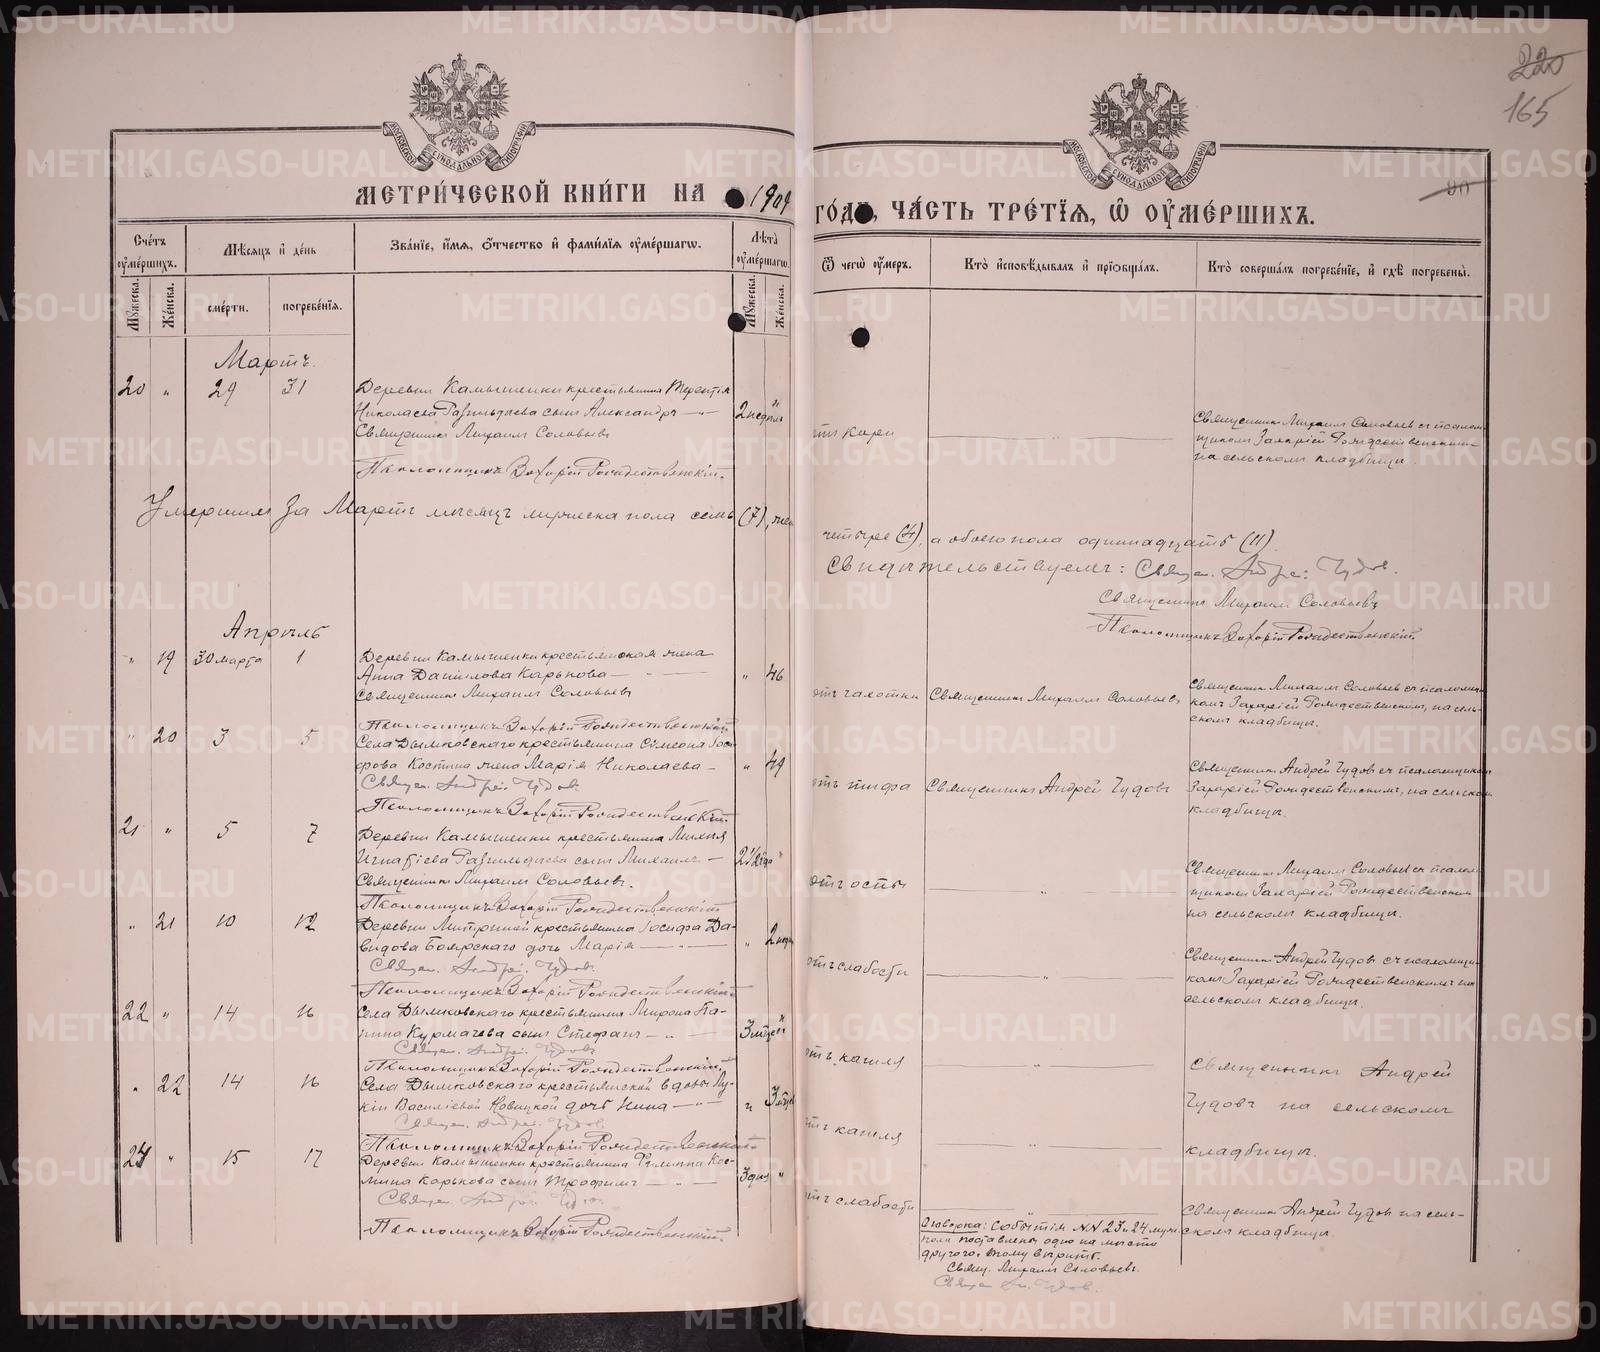 220
165
90
МОСКОВСКОЙ СѴНОДАЛЬНОЙ ТИПОГРАФІИ
МОСКОВСКОЙ СѴНОДАЛЬНОЙ ТИПОГРАФІИ
МЕТРИ́ЧЕСКОЙ КНИ́ГИ НА 1909
ГО́ДЪ, ЧА́СТЬ ТРЕ́ТІЯ, Ѿ ОУМЕ́РШИХЪ.
Счéтъ оумéршихъ.
Мѣ́сяцъ и҆ дéнь
Звáніе, и҆́мя, ѻ҆́тчество и҆ фами́лія оумéршагѡ.
Лѣ́та оумéршагѡ.
Ѿ чегѡ̀ оу́меръ.
Ктò и҆сповѣ́дывалъ и҆ прїѡбщáлъ.
Ктò совершáлъ погребéніе, и҆ гдѣ̀ погребены̀.
Мꙋ́жеска.
Жéнска.
смéрти.
погребéнія.
Мꙋ́жеска.
Жéнска.
Мартъ.
20 „ 29 31
Деревни Камышенки крестьянина Терентія
Николаева сынъ Александръ — „ —
Священникъ Михаилъ Соловьевъ
Псаломщикъ Захарій Рождественскій.
2 недѣли „
Священникъ Михаилъ Соловьев съ псалом-
щикомъ Захаріей Рождественскимъ
на сельскомъ кладбищѣ.
Умершихъ за Мартъ мѣсяцъ мужеска пола семь (7), жен
четыре (4), а обоего пола одиннадцать (11).
Свидѣтельствуемъ: Священ. Андрей Чудов.
Священникъ Михаилъ Соловьевъ
Псаломщикъ Захарій Рождественскій.
Апрѣль
„ 19 30 марта 1
Деревни Камышенки крестьянская жена
Анна Данилова Карькова — „ —
Священникъ Михаилъ Соловьевъ
Псаломщикъ Захарій Рождественскій.
„ 46
отъ чахотки
Священникъ Михаилъ Соловьевъ
Священникъ Михаилъ Соловьев съ псаломщи-
комъ Захаріей Рождественскимъ, на сель-
скомъ кладбищѣ.
„ 20 3 5
Села Дымковскаго крестьянина Сімеона Іоси-
фова Костина жена Марія Николаева —
Священ. Андрей Чудов.
Псаломщикъ Захарій Рождественскій.
„ 49
отъ тифа
Священникъ Андрей Чудовъ
Священникъ Андрей Чудовъ съ псаломщикомъ
Захаріей Рождественскимъ, на сельскомъ
кладбищѣ.
21 „ 5 7
Деревни Камышенки крестьянина
Игнатіева сынъ Михаилъ —
Священникъ Михаилъ Соловьевъ.
Псаломщикъ Захарій Рождественскій
отъ оспы
„
Священникъ Михаилъ Соловьев съ псалом-
щикомъ Захаріей Рождественским
на сельскомъ кладбищѣ.
„ 21 10 12
Деревни крестьянина Іосифа Да-
видова Боярскаго дочь Марія — „ —
Священ. Андрей Чудов.
Псаломщикъ Захарій Рождественскій
„ 2 недѣли
отъ слабости
„
Священникъ Андрей Чудовъ съ псаломщи-
комъ Захаріей Рождественскимъ на
сельскомъ кладбищѣ.
22 „ 14 16
Села Дымковскаго крестьянина Мирона
Курмачева сынъ Стефанъ — „ —
Священ. Андрей Чудовъ
Псаломщикъ Захарій Рождественскій.
отъ кашля
„
Священникъ Андрей
Чудовъ на сельскомъ
кладбищѣ.
„ 22 14 16
Села Дымковскаго крестьянской вдовы Лу-
кіи Василіевой Новицкой дочь Нина — „ —
Священ. Андрей Чудов.
Псаломщикъ Захарій Рождественскій
отъ кашля
„
„ 15 17
Деревни Камышенки крестьянина Филиппа Кос-
мина Карькова сынъ Трофимъ — „ —
Священ. Андрей Чудов.
Псаломщикъ Захарій Рождественскій.
3 дня „
отъ слабости
„
Священникъ Андрей Чудовъ на сель-
скомъ кладбищѣ.
Оговорка: Событія NN 23 и 24 муж.
пола поставлены одно на мѣсто
другого, вѣрить.
Свящ. Михаилъ Соловьевъ.
Священ Ан. Чудов.
METRIKI.GASO-URAL.RU